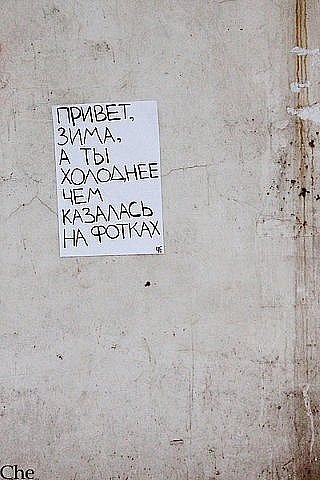 ПРИВЕТ,
ЗИМА,
А ТЫ
ХОЛОДНЕЕ
ЧЕМ
КАЗАЛАСЬ
НА ФОТКАХ
Che